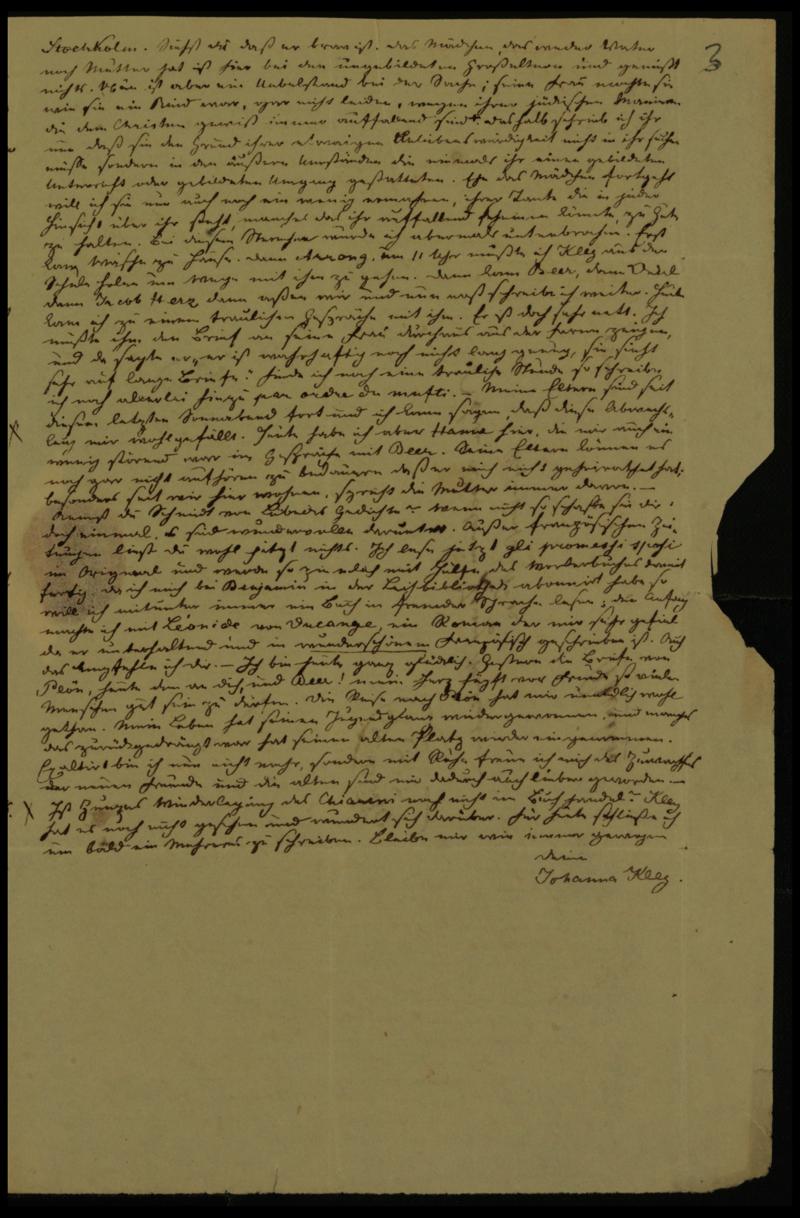 3
Stockholm. Siehst du daß er brav ist. das Mädchen, das weder Vater
noch Mutter hat ist hier bei den ungebildeten Großeltern und genießt
nichts. Nun ist aber ein Uebelstand bei der Sache; seine Frau mochte sie
wie sie ein Kind war, gar nicht leiden, wegen ihrer jüdischen Manieren
die dem Christen gewiß immer auffallend sind. deshalb schrieb ich ihr
nun daß sie den Grund ihrer etwaigen Unliebenswürdigkeit nicht in ihr suchen
müsse sondern in den äußern Umständen die niemals ihr einen gebildeten
Unterricht oder gebildeten Umgang gestatteten. Ehe das Mädchen fortgeht
will ich sie nun auch noch ein wenig ermahnen, ihrer Tante die in jeder
Hinsicht über ihr steht, manches das ihr auffallend scheinen könnte, zu Gute
zu halten. Bei diesem wurde ich abermals unterbrochen. Erst
kam Wäsche zu Hause. dann Arrong, um 11 Uhr mußte ich Kley aus der
Schule holen um Wege mit ihm zu gehen. dann kam Beer, dann
dann Jacob Herz dann aßen wir und nun schreibe ich weiter. Heute
kam ich zu einem traulichen Gespräche mit ihm. Er ist doch sehr nett. Ich
mußte ihm den Brief an seine Frau durchaus aus der Ferne zeigen,
und da sagte er, er ist wahrhaftig noch nicht lang genug, sie sieht
sehr auf lange Briefe. Finde ich noch eine trauliche Stunde so schreibe
ich noch allerlei hinzu par ordre du mufti. – Meine Eltern sind seit
diesem letzten Sonnabend fort und ich kann sagen, daß diese Abwechs-
lung mir wohlgefällt. Heute habe ich aber Hanne hier, die mir auch ein
wenig störend war im Gespräche mit Beer. Seine Eltern können es
noch gar nicht aufhören zu bedauern daß er mich nicht geheirathet hat;
besonders seit wir hier wohnen, spricht die Mutter immer davon. –
Kennst du Schmidt von Lübecks Gedichte? wenn nicht so schaffe sie dir
doch einmal, es sind wundervolle darunter. Außer französischen Zei-
tungen liest du wohl jetzt nichts. Ich lese jetzt gli promessi sposi
im Original und werde so ziemlich mit Hilfe des Wörterbuches damit
fertig; da ich mich bei Benjamin in der Leihbibliothek abonnirt habe so
will ich mitunter immer ein Buch in fremder Sprache lesen; den Anfang
machte ich mit Léonide von Ducange, ein Roman der mir sehr gefiel
da er unterhaltend und in wunderschönem Französisch geschrieben ist. Auch
das empfehle ich dir. – Ich bin heute ganz glücklich. Gestern die Briefe von
Plön, heute den an dich, und Beer! mein Herz hüpft vor Freude so vielen
Menschen gut sein zu dürfen. Die Reise nach Plön hat mir unendlich wohl
gethan. Mein Leben hat seinen Jugendglanz wiedergewonnen, und manches
das zurückgedrängt war hat seinen alten Platz wieder eingenommen.
Exaltirt bin ich nun nicht mehr, sondern mit Ruhe freue ich mich des Zuwachses
der neuen Freunde und die alten sind mir dadurch auch lieber geworden. –
Ist Zunzens Widerlegung des Chiarini noch nicht im Buchhandel? Kley
hat es noch nicht gesehen und wundert sich darüber. Für heute schließe ich
um bald ein Mehreres zu schreiben. Bleibe mir wie immer gewogen
deine
Johanna Kley.